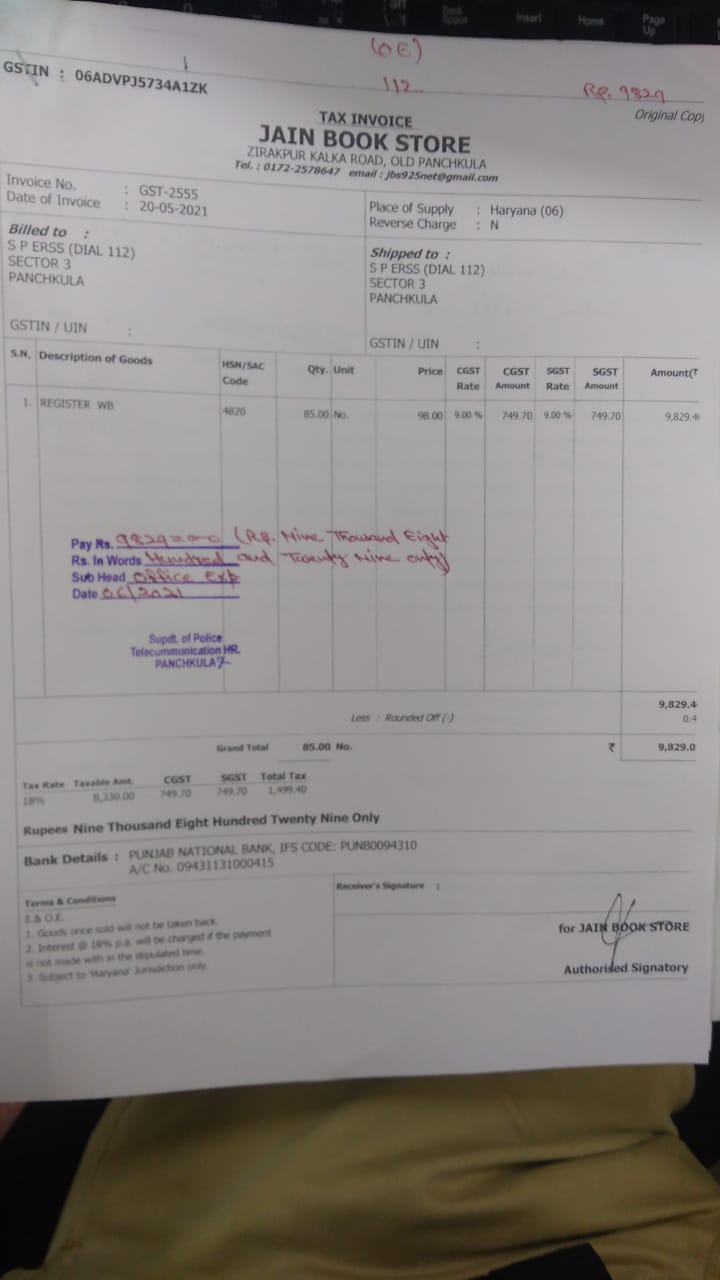 Back Space
Insert
Home
Page Up
(OE)
112
Rs. 9829
GSTIN : 06ADVPJ5734A1ZK
Original Copy
TAX INVOICE
JAIN BOOK STORE
ZIRAKPUR KALKA ROAD, OLD PANCHKULA
Tel. : 0172-2578647 email : jbs925net@gmail.com
Invoice No. : GST-2555
Date of Invoice : 20-05-2021
Place of Supply : Haryana (06)
Reverse Charge : N
Billed to :
S P ERSS (DIAL 112)
SECTOR 3
PANCHKULA
GSTIN / UIN :
Shipped to :
S P ERSS (DIAL 112)
SECTOR 3
PANCHKULA
GSTIN / UIN :
S.N. Description of Goods HSN/SAC Code Qty. Unit Price CGST Rate CGST Amount SGST Rate SGST Amount Amount(₹
1. REGISTER WB 4820 85.00 No. 98.00 9.00 % 749.70 9.00 % 749.70 9,829.4
Pay Rs. 9829=00 (Rs. Nine Thousand Eight
Rs. In Words Hundred and Twenty Nine only)
Sub Head Office Exp
Date 06/2021
Supdt. of Police
Telecummunication HR.
PANCHKULA
9,829.4
Less : Rounded Off (-) 0.4
Grand Total 85.00 No. ₹ 9,829.0
Tax Rate Taxable Amt. CGST SGST Total Tax
18% 8,330.00 749.70 749.70 1,499.40
Rupees Nine Thousand Eight Hundred Twenty Nine Only
Bank Details : PUNJAB NATIONAL BANK, IFS CODE: PUNB0094310
A/C No. 09431131000415
Terms & Conditions
E.& O.E.
1. Goods once sold will not be taken back.
2. Interest @ 18% p.a. will be charged if the payment
is not made with in the stipulated time.
3. Subject to 'Haryana' Jurisdiction only.
Receiver's Signature :
for JAIN BOOK STORE
Authorised Signatory